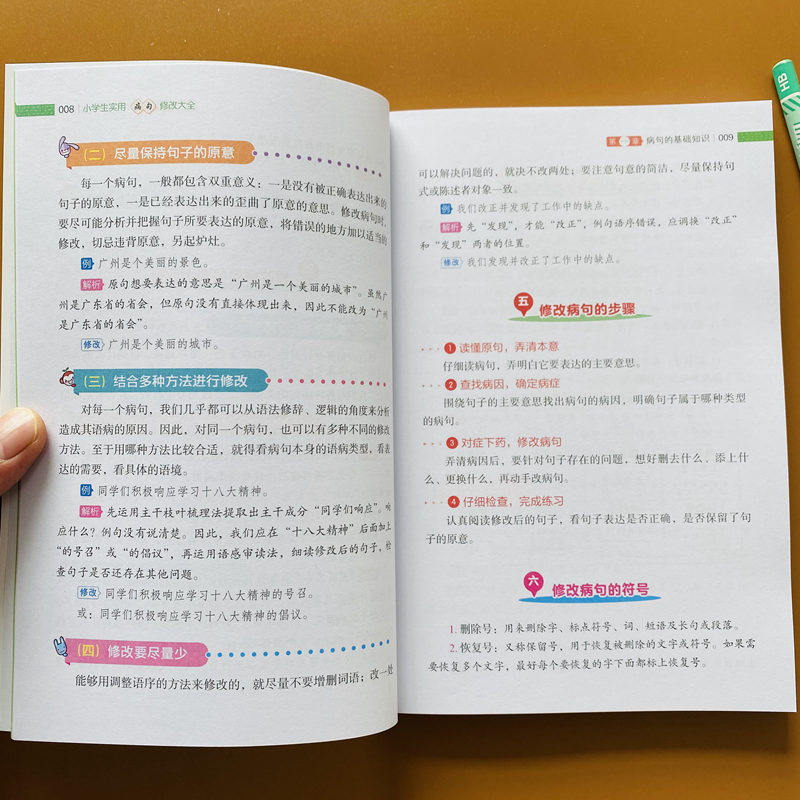 008 小学生实用 病句 修改大全
（二） 尽量保持句子的原意
每一个病句，一般都包含双重意义：一是没有被正确表达出来的
句子的原意，一是已经表达出来的歪曲了原意的意思。修改病句时，
要尽可能分析并把握句子所要表达的原意，将错误的地方加以适当的
修改，切忌违背原意，另起炉灶。
例 广州是个美丽的景色。
解析 原句想要表达的意思是“广州是一个美丽的城市”。虽然广
州是广东省的省会，但原句没有直接体现出来，因此不能改为“广州
是广东省的省会”。
修改 广州是个美丽的城市。
（三） 结合多种方法进行修改
对每一个病句，我们几乎都可以从语法修辞、逻辑的角度来分析
造成其语病的原因。因此，对同一个病句，也可以有多种不同的修改
方法。至于用哪种方法比较合适，就得看病句本身的语病类型，看表
达的需要，看具体的语境。
例 同学们积极响应学习十八大精神。
解析 先运用主干枝叶梳理法提取出主干成分“同学们响应”。响
应什么？例句没有说清楚。因此，我们应在“十八大精神”后面加上
“的号召”或“的倡议”，再运用语感审读法，细读修改后的句子，检
查句子是否还存在其他问题。
修改 同学们积极响应学习十八大精神的号召。
或：同学们积极响应学习十八大精神的倡议。
（四） 修改要尽量少
能够用调整语序的方法来修改的，就尽量不要增删词语；改一处
第一章 病句的基础知识 009
可以解决问题的，就决不改两处；要注意句意的简洁，尽量保持句
式或陈述者对象一致。
例 我们改正并发现了工作中的缺点。
解析 先“发现”，才能“改正”，例句语序错误，应调换“改正”
和“发现”两者的位置。
修改 我们发现并改正了工作中的缺点。
五 修改病句的步骤
1 读懂原句，弄清本意
仔细读病句，弄明白它要表达的主要意思。
2 查找病因，确定病症
围绕句子的主要意思找出病句的病因，明确句子属于哪种类型
的病句。
3 对症下药，修改病句
弄清病因后，要针对句子存在的问题，想好删去什么、添上什
么、更换什么，再动手改病句。
4 仔细检查，完成练习
认真阅读修改后的句子，看句子表达是否正确，是否保留了句
子的原意。
六 修改病句的符号
1. 删除号：用来删除字、标点符号、词、短语及长句或段落。
2. 恢复号：又称保留号，用于恢复被删除的文字或符号。如果需
要恢复多个文字，最好每个要恢复的字下面都标上恢复号。
HB